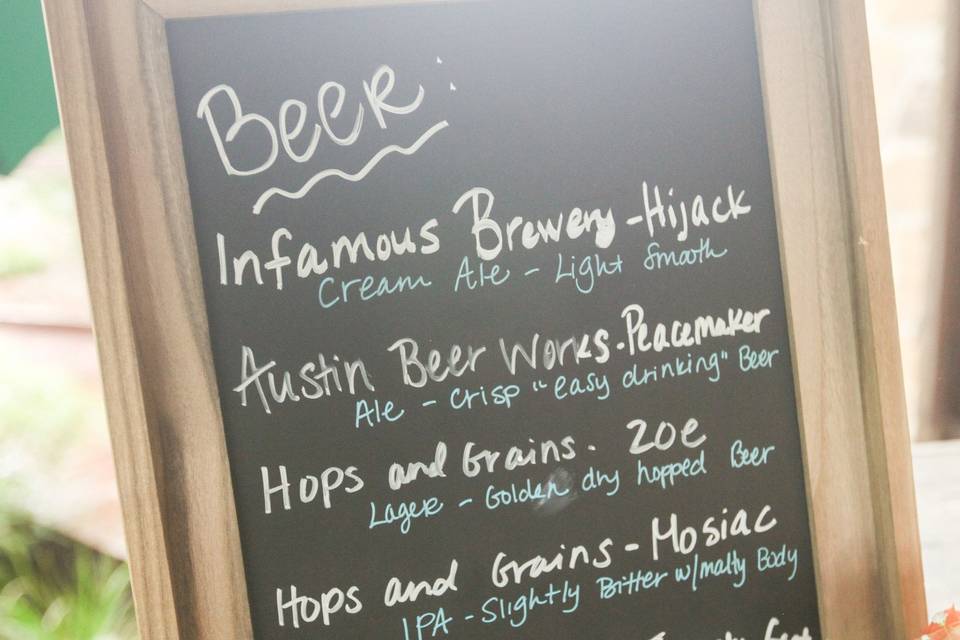 Beer:
Infamous Brewery - Hijack
Cream Ale - Light Smooth
Austin Beer Works - Peacemaker
Ale - Crisp "easy drinking" Beer
Hops and Grains - Zoe
Lager - Golden dry hopped Beer
Hops and Grains - Mosiac
IPA - Slightly Bitter w/malty Body